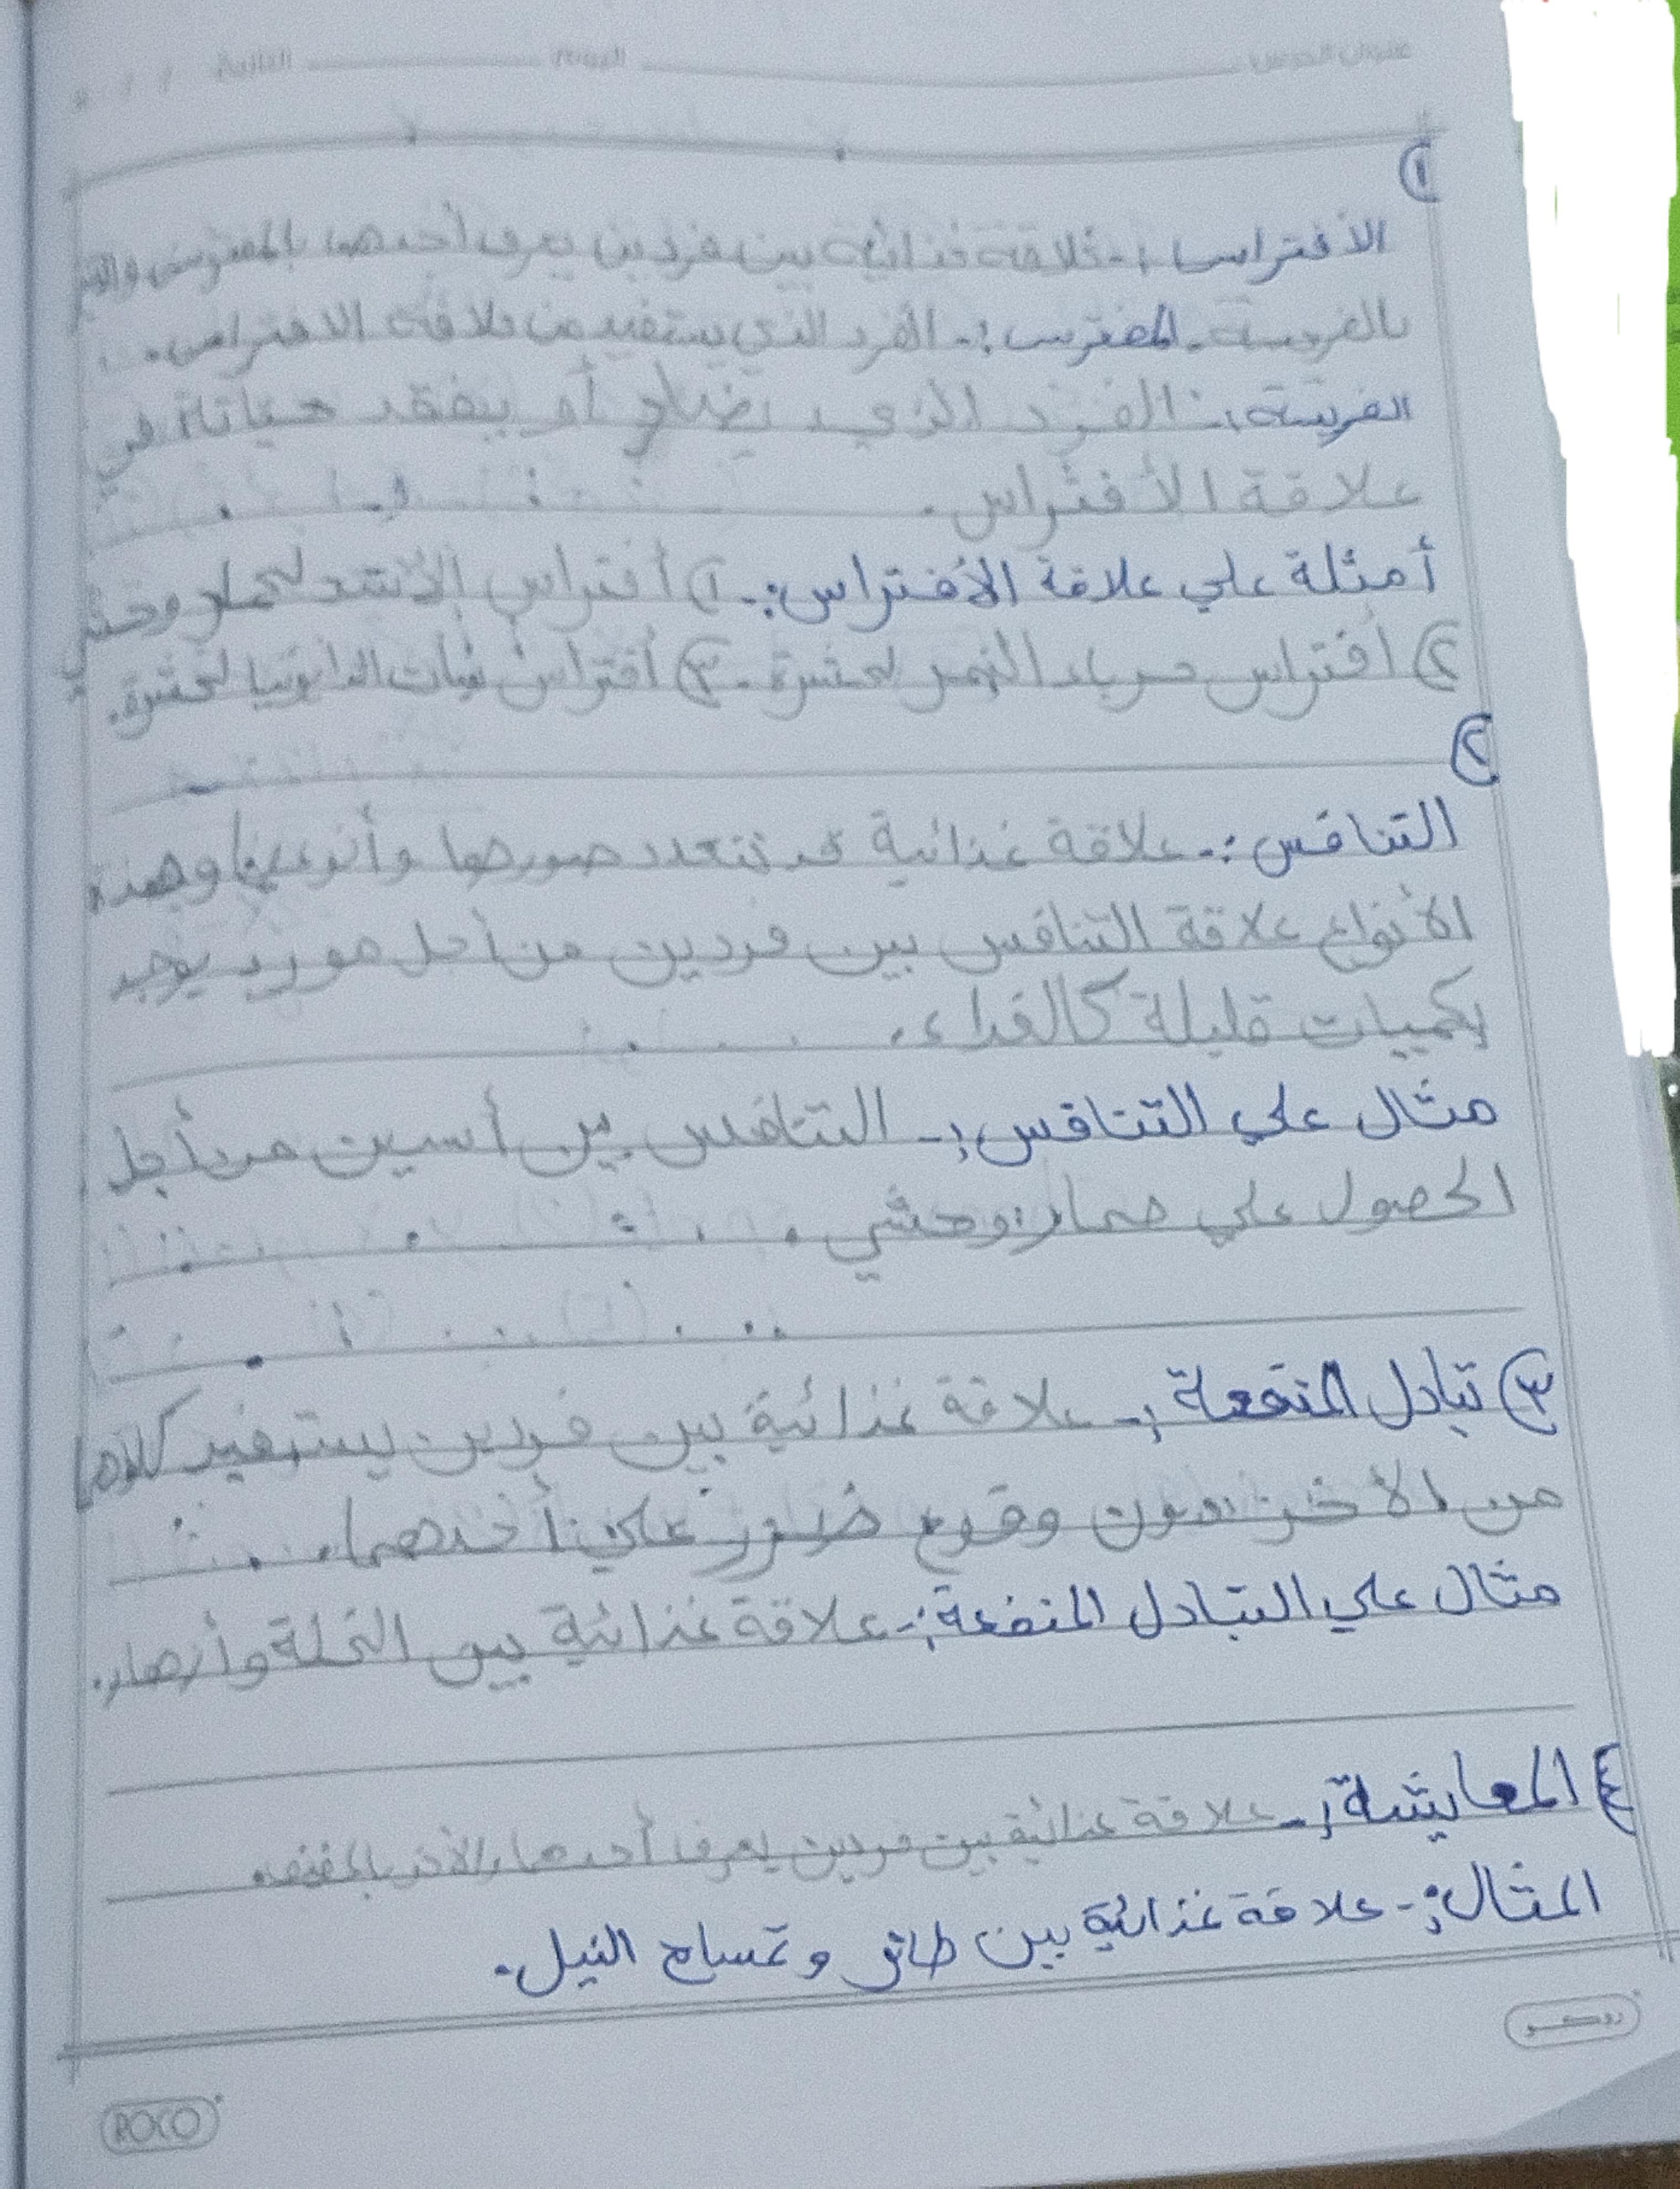 عنوان الدرس اليوم التاريخ / /
١
الأفتراس :- علاقة غذائية بين فردين يعرف أحدهما بالمفترس والآخر
بالفريسة. المفترس :- الفرد الذي يستفيد من علاقة الافتراس.
الفريسة :- الفرد الذي يضار أو يفقد حياتة في
علاقة الأفتراس.
أمثلة علي علاقة الأفتراس :- ١ أفتراس الأسد لحمار وحشي
٢ أفتراس حرباء النمر لحشرة - ٣ أفتراس نبات الدايونيا لحشرة.
٢
التنافس :- علاقة غذائية قد تتعدد صورها وأنوعها وهذة
الأنواع علاقة التنافس بين فردين من أجل مورد يوجد
بكميات قليلة كالغداء.
مثال علي التنافس :- التنافس بين أسين من أجل
الحصول علي حمار وحشي.
٣ تبادل المنفعة :- علاقة غذائية بين فردين يستفيد كلاهما
من الأخر دون وقوع ضرر علي أحدهما.
مثال علي التبادل المنفعة :- علاقة غذائية بين النحلة وأزهار.
٤ المعايشة :- علاقة غذائية بين فردين يعرف أحدهما
المثال :- علاقة غذائية بين طائر وتمساح النيل.
روكو
ROCO